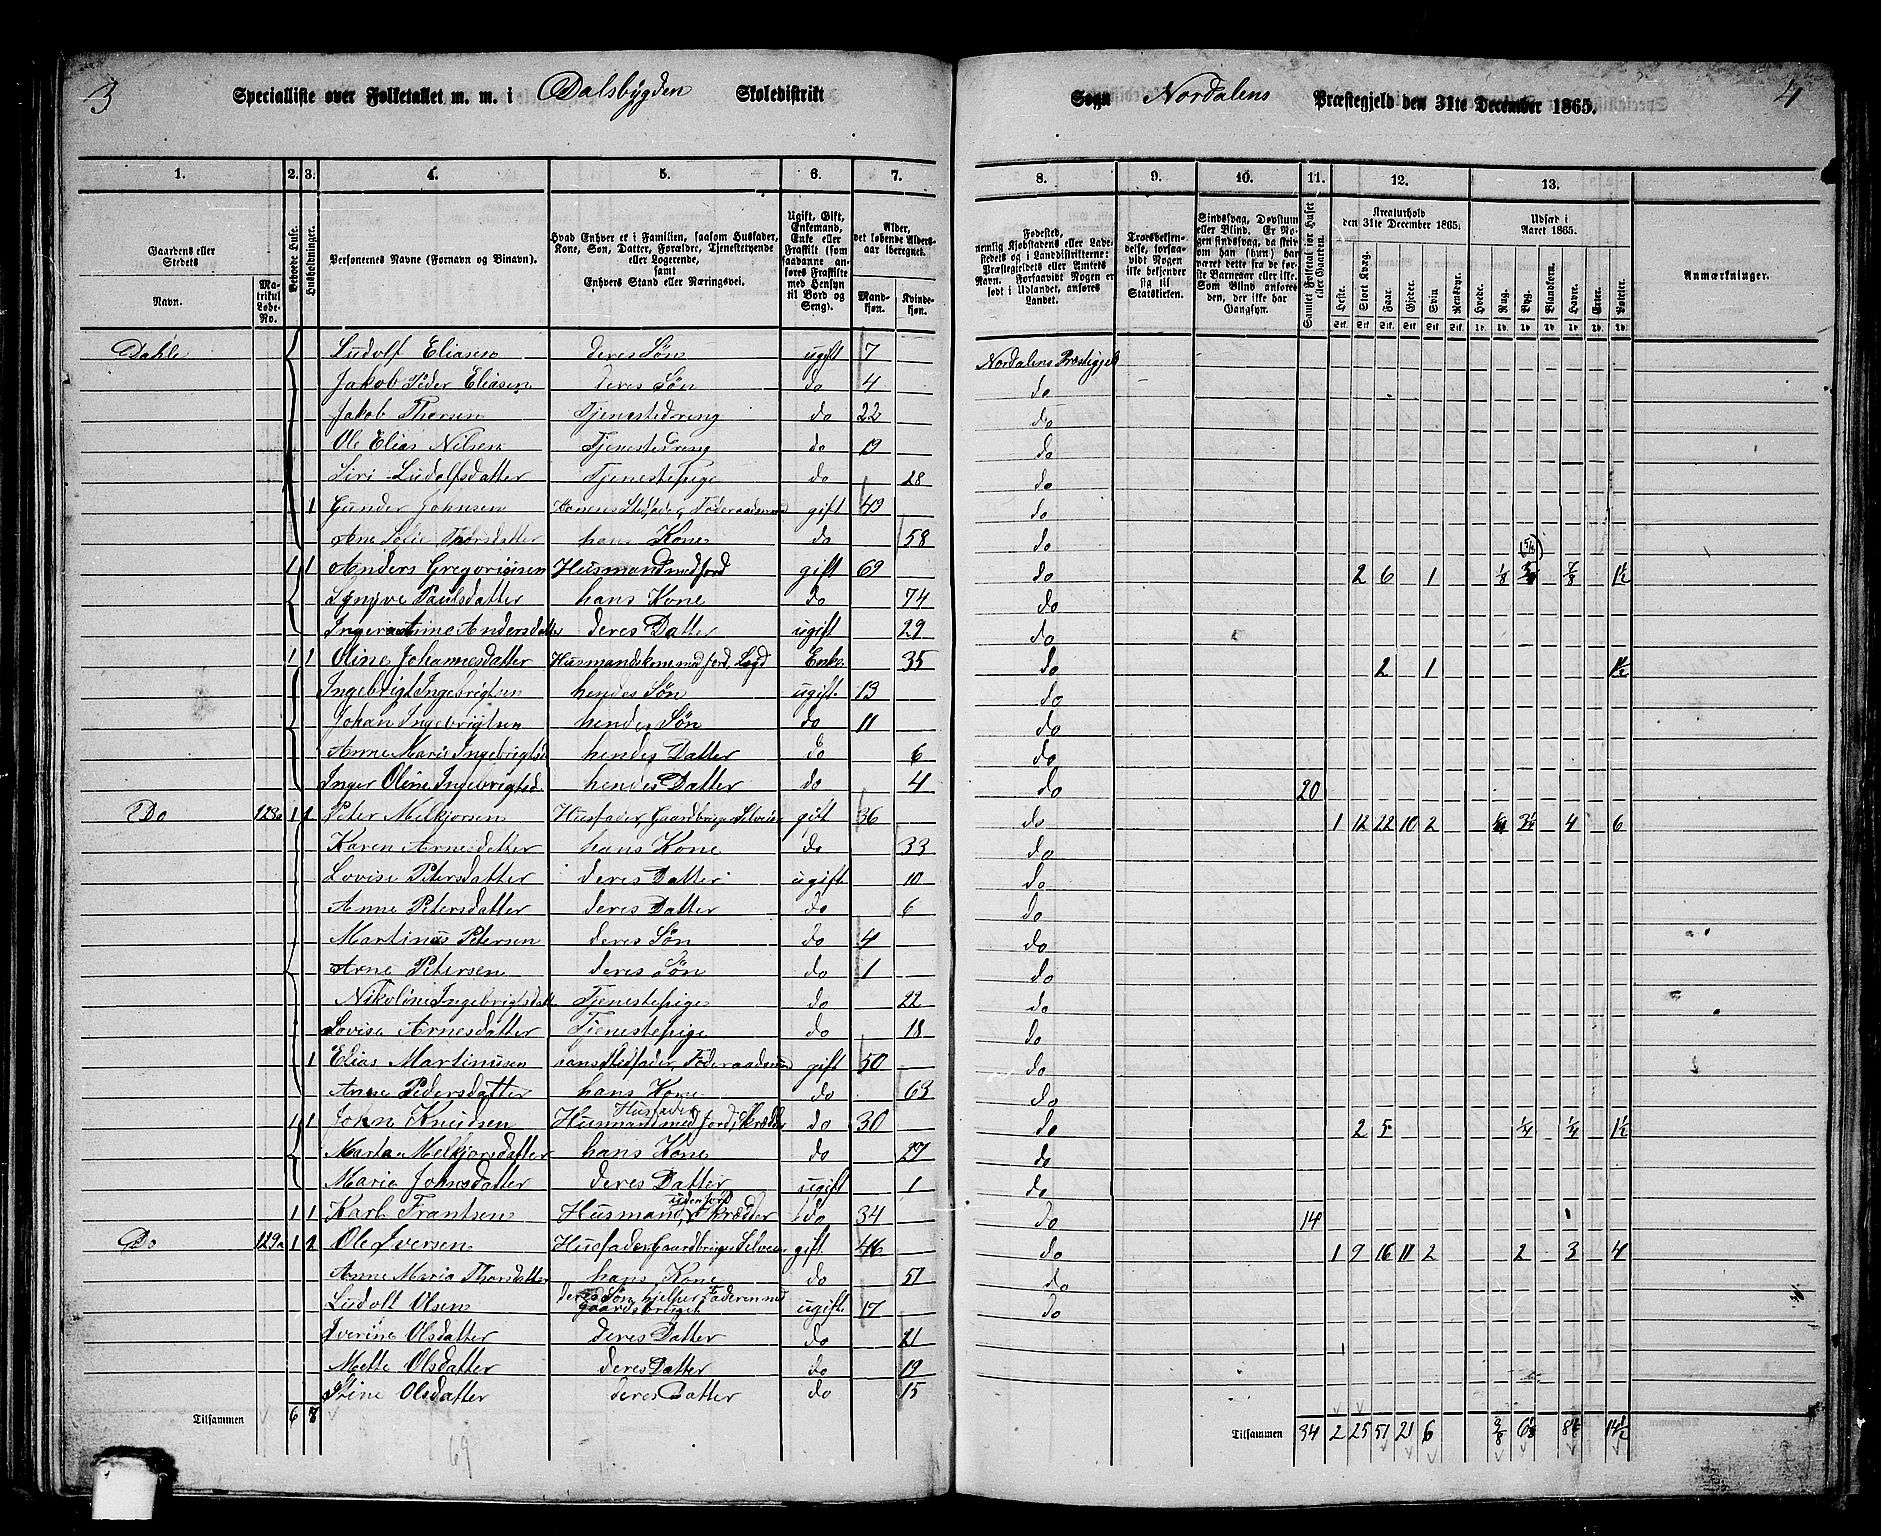 3 Specialliste over Folketallet m. m. i Dalsbygden Skoledistrikt Sogn Nordalens Præstegjeld den 31te December 1865. 4
1. 2. 3. 4. 5. 6. 7. 8. 9. 10. 11. 12. 13.
Gaardens eller Stedets Navn.
Matrikul Løbe-No.
Beboede Huse.
Husholdninger.
Personernes Navne (Fornavn og Binavn).
Hvad Enhver er i Familien, saasom Husfader, Kone, Søn, Datter, Forældre, Tjenestetyende eller Logerende, samt Enhvers Stand eller Næringsvei.
Ugift, Gift, Enkemand, Enke eller Fraskilt (som saadanne anføres Fraskilte med Hensyn til Bord og Seng).
Alder, det løbende Aldersaar iberegnet.
Mandkjøn. Kvindekjøn.
Fødested, nemlig Kjøbstadens eller Ladestedets og i Landdistrikterne: Præstegjeldets eller Amtets Navn. Forsaavidt Nogen er født i Udlandet, anføres Landet.
Trosbekjendelse, forsaavidt Nogen ikke bekjender sig til Statskirken.
Sindssvag, Døvstum eller Blind. Er Nogen sindssvag, da skrives om han (hun) har været dette fra de første Barneaar eller ikke. Som Blind anføres den, der ikke har Gangsyn.
Samlet Folketal for Huset eller Gaarden.
Kreaturhold den 31te December 1865.
Heste. Stort Kvæg. Faar. Gjeder. Svin. Rensdyr.
Udsæd i Aaret 1865.
Hvede. Rug. Byg. Blandkorn. Havre. Erter. Poteter.
Anmærkninger.
Dahle Ludolf Eliasen deres Søn ugift 7 Nordalens Præstegjeld
Jakob Peder Eliasen deres Søn do 4 do
Jakob Thorsen Tjenestedreng do 22 do
Ole Elias Nilsen Tjenestedreng do 19 do
Siri Ludolfsdatter Tjenestepige do 28 do
1 Gunder Johnsen Konens Stedfader, Føderaadsmand gift 49 do
Ane Sofie Thorsdatter hans Kone do 58 do
1 1 Anders Gregoriusen Husmand med Jord gift 69 do 2 6 1 1/8 7/8 1½
Synnve Paulsdatter hans Kone do 74 do
Ingeranne Andersdatter deres Datter ugift 29 do
1 1 Oline Johannesdatter Husmandskone med Jord, Lægd Enke 35 do 2 1 1½
Ingebrigt Ingebrigtsen hendes Søn ugift 13 do
Johan Ingebrigtsen hendes Søn do 11 do
Anne Marie Ingebrigtsd hendes Datter do 6 do
Inger Oline Ingebrigtsd. hendes Datter do 4 do 20
Do 123a 1 1 Peter Melkjorsen Husfader Gaardbruger Selveier gift 36 do 1 12 22 10 2 1/4 3¼ 4 6
Karen Arnesdatter hans Kone do 33 do
Lovise Petersdatter deres Datter ugift 10 do
Anne Petersdatter deres Datter do 6 do
Martinus Petersen deres Søn do 4 do
Arne Petersen deres Søn do 1 do
Nikoline Ingebrigtsdatt Tjenestepige do 22 do
Lovise Arnesdatter Tjenestepige do 18 do
1 Elias Martinusen hans Stedfader, Føderaadsmand gift 50 do
Anne Pedersdatter hans Kone do 63 do
1 1 John Knudsen Husfader Husmand med Jord, Skrædder do 30 do 2 5 1/4 1/4 1½
Marta Melkjorsdatter hans Kone do 27 do
Marie Johnsdatter deres Datter ugift 1 do
1 1 Karl Frantsen Husmand uden Jord, Skrædder do 34 do 14
Do 129a 1 2 Ole Iversen Husfader Gaardbruger Selveier gift 46 do 1 9 16 11 2 2 3 4
Anne Maria Thorsdatter hans Kone do 51 do
Ludolf Olsen deres Søn hjelper Faderen med Gaardsbruget ugift 17 do
Iverine Olsdatter deres Datter do 21
Mette Olsdatter deres Datter do 19
Stine Olsdatter deres Datter do 15
Tilsammen 6 8 Tilsammen 34 2 25 51 21 6 3/8 6⅛ 8⅛ 14½
69